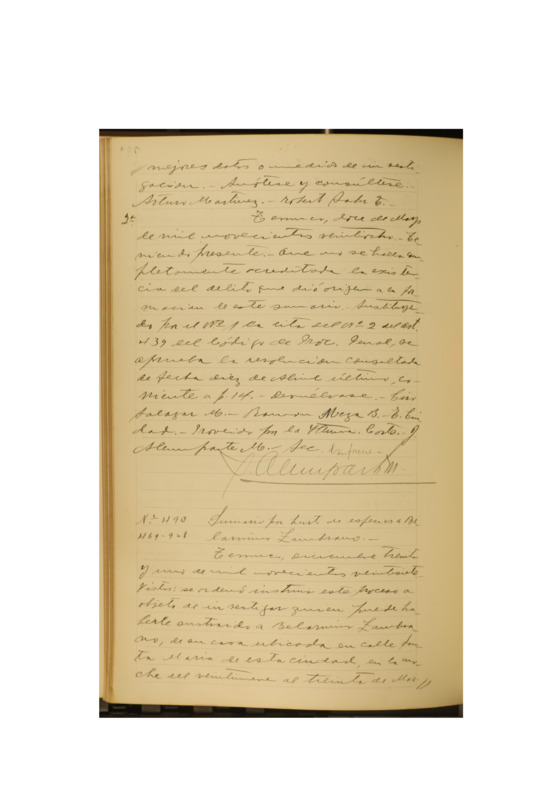 mejores datos o medios de investi-
gación. - Anótese y consúltese. -
Arturo Martínez. - Robert Jahr E. -
2ª Temuco, doce de Mayo
de mil novecientos veintiocho. - Te-
niendo presente: - Que no se halla com-
pletamente acreditada la existen-
cia del delito que dió origen a la for-
macion de este sumario. Sustituyen-
do por el Nº 1 la cita del Nº 2 del art.
439 del Código de Proc. Penal, se
aprueba la resolucion consultada
de fecha diez de Abril último, co-
rriente a f 14. - Devuélvase. - Ciro
Salazar M. - Ramon Meza B. -
dad. - Proveido por la Iltma. Corte. - J
Alemparte M. - Sec. Conforme. -
J Alemparte M
N.º 1190 Sumario por hurto de especies a Be-
1169-928 larmino Zambrano. -
Temuco, treinta
y uno de mil novecientos veintisiete.
Vistos: se ordenó instruir este proceso a
objeto de investigar quien puede ha-
berle sustraido a Belarmino Zambra-
no, de su casa ubicada en calle San-
ta Maria de esta ciudad, en la no-
che del veintinueve al treinta de